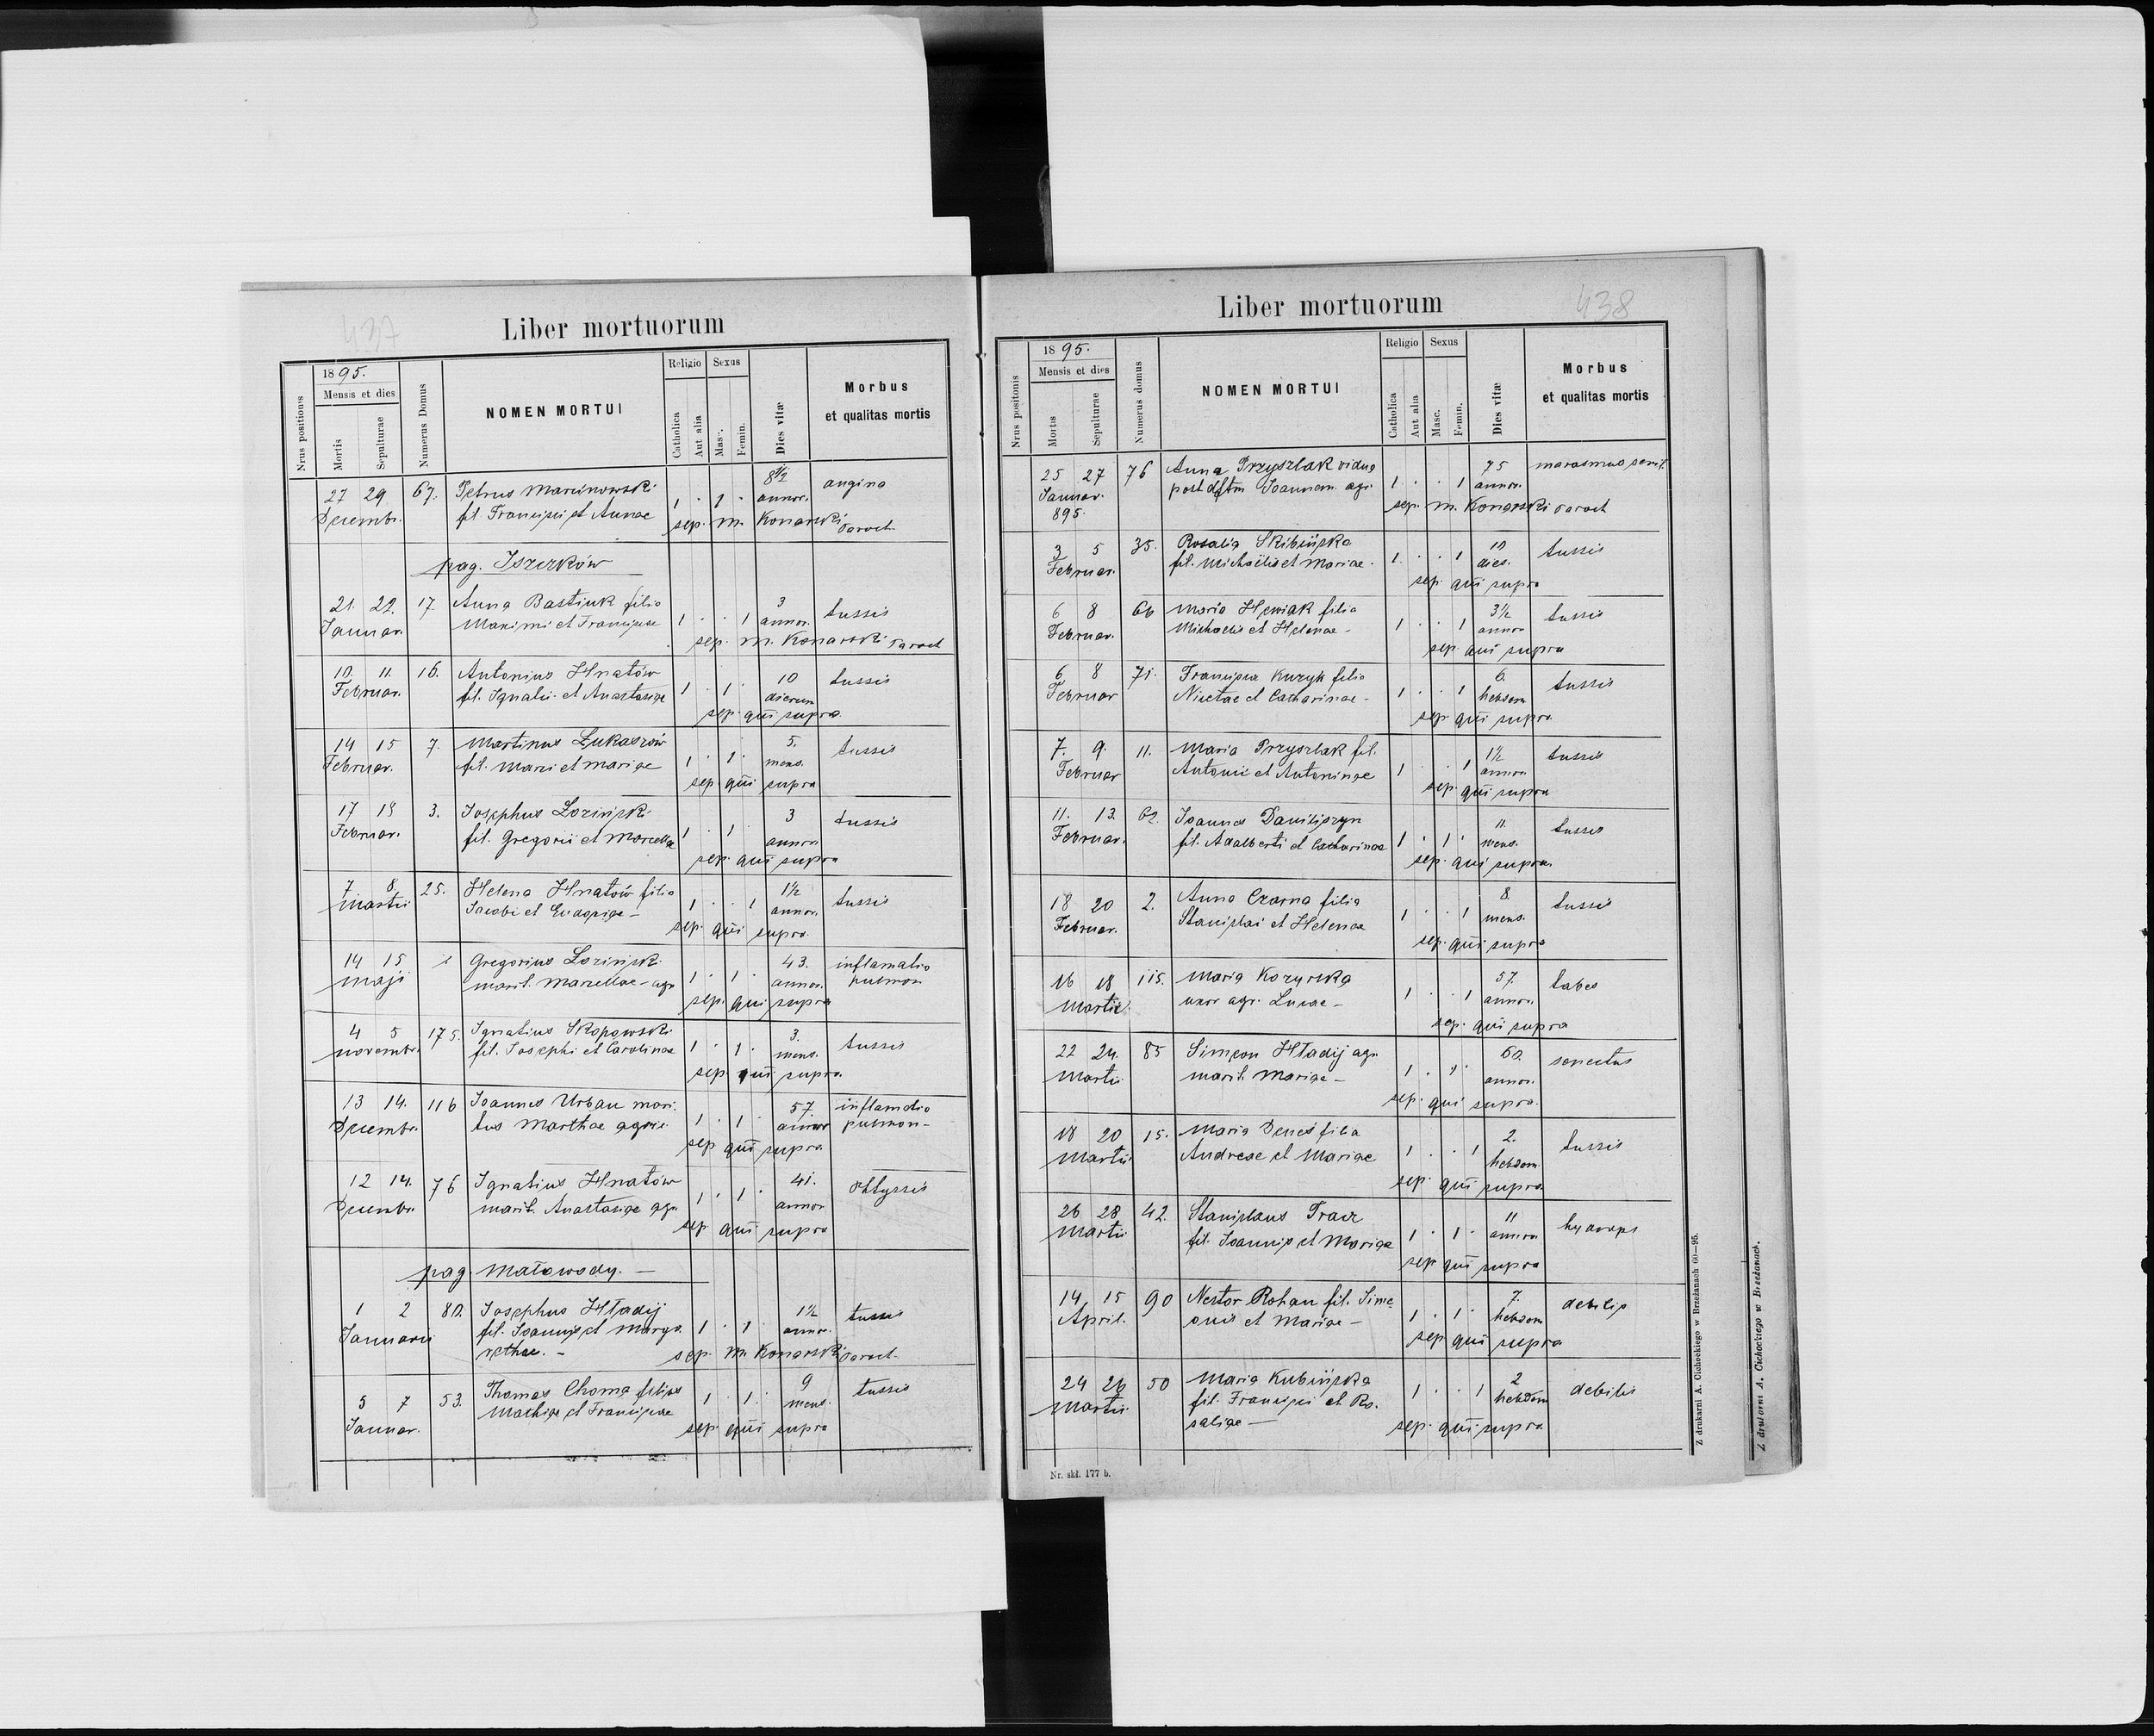 437
Liber mortuorum
Nrus positionis
1895.
Mensis et dies
Mortis
Sepulturae
Numerus Domus
NOMEN MORTUI
Religio
Catholica
Aut alia
Sexus
Masc.
Femin.
Dies vitæ
Morbus
et qualitas mortis
27 29 67. Petrus Marcinowski 8 1/2 angina
Decembr. fil Francisci et Annae 1 · 1 · annor.
sep. M. Konarski Paroch
pag. Iszczków
21. 22. 17 Anna Bastiuk filia 3 tussis
Januar. Maximi et Franciscae 1 · · 1 annor.
sep. M. Konarski Paroch
10. 11. 16. Antonius Hnatów 10 tussis
Februar. fil. Ignatii et Anastasiae 1 · 1 · dierum
sep. qui supra
14 15 7. Martinus Łukaszów 5. tussis
Februar. fil. Marci et Mariae 1 · 1 · mens.
sep. qui supra
17 19 3. Josephus Łoziński 3 tussis
Februar. fil. Gregorii et Marcella 1 · 1 · annor
sep. qui supra
7 8 25. Helena Hnatów filia 1 1/2 tussis
Martii Jacobi et Eudoxiae – 1 · · 1 annor.
sep. qui supra.
14 15 Gregorius Łoziński 43. inflamatio
Maji marit. Marcellae – agr 1 · 1 · annor. pulmon
sep. qui supra
4 5 175. Ignatius Skopowski 3. tussis
Novembr. fil. Josephi et Carolinae 1 · 1 · mens.
sep. qui supra.
13 14. 116 Joannes Urban mari- 57. inflamatio
Decembr. tus Marthae agric. 1 · 1 · annor pulmon –
sep qui supra
12 14. 76 Ignatius Hnatów 41. Phtyssis
Decembr. marit. Anastasiae agr. 1 · 1 · annor
sep qui supra
pag. Małowody. –
1 2 80. Josephus Hładij 1 1/2 tussis
Januarii fil. Joannis et Marga- 1 · 1 · annor.
rethae. – sep. M. Konarski Paroch
5 7 53. Thomas Choma filius 9 tussis
Januar. Mathiae et Franciscae 1 · 1 · mens.
sep. qui supra
438
Liber mortuorum
Nrus positonis
1895.
Mensis et dies
Mortis
Sepulturae
Numerus domus
NOMEN MORTUI
Religio
Catholica
Aut alia
Sexus
Masc.
Femin.
Dies vitæ
Morbus
et qualitas mortis
25 27 76 Anna Przyszlak vidua 75 marasmus senil.
Januar. post dftm Joannem agr. 1 · · 1 annor.
895. sep. M. Konarski Paroch
3 5 35. Rosalia Skibińska 10 tussis
Februar. fil. Michaëlis et Mariae. 1 · · 1 dies.
sep. qui supra
6 8 66 Maria Heniak filia 3 1/2 tussis
Februar. Michaelis et Helenae – 1 · · 1 annor
sep. qui supra
6 8 71. Francisca Kuzyk filia 6. tussis
Februar Nicetae et Catharinae – 1 · · 1 hebdom
sep. qui supra
7. 9. 11. Maria Przyszlak fil. 1 1/2 tussis
Februar Antonii et Antoninae 1 · · 1 annor
sep. qui supra
11. 13. 62. Joannes Daniliszyn 11. tussis
Februar. fil. Adalberti et Catharinae 1 · 1 · mens.
sep. qui supra
18 20 2. Anna Czarna filia 8 tussis
Februar. Stanislai et Helenae 1 · · 1 mens.
sep. qui supra
16 18 115. Maria Kozyrska 57. tabes
Martii uxor agr. Lucae – 1 · · 1 annor.
sep. qui supra
22 24. 85 Simeon Hładij agr. 60. senectus
Martii marit. Mariae – 1 · 1 · annor.
sep. qui supra.
18 20 15. Maria Deneś filia 2. tussis
Martii Andreae et Mariae 1 · · 1 hebdom
sep. qui supra
26 28 42. Stanislaus Tracz 11 hydrops
Martii fil. Joannis et Mariae 1 · 1 · annor
sep. qui supra
14 15 90 Nestor Rohan fil. Sime- 7. debilis
April. onis et Mariae – 1 · 1 · hebdom
sep. qui supra
24 26 50 Maria Kubińska 2 debilis
Martii fil. Francisci et Ro- 1 · · 1 hebdom
saliae – sep. qui supra
Nr. skł. 177 b.
Z drukarni A. Cichockiego w Brzeżanach 60—95.
Z drukarni A. Cichockiego w Brzeżanach.